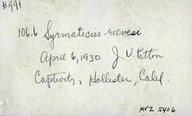 #991
106.6 Syrmaticus reevesi
April 6, 1930 J. V. Patton
Captivity, Hollister, Calif.
MVZ 5406